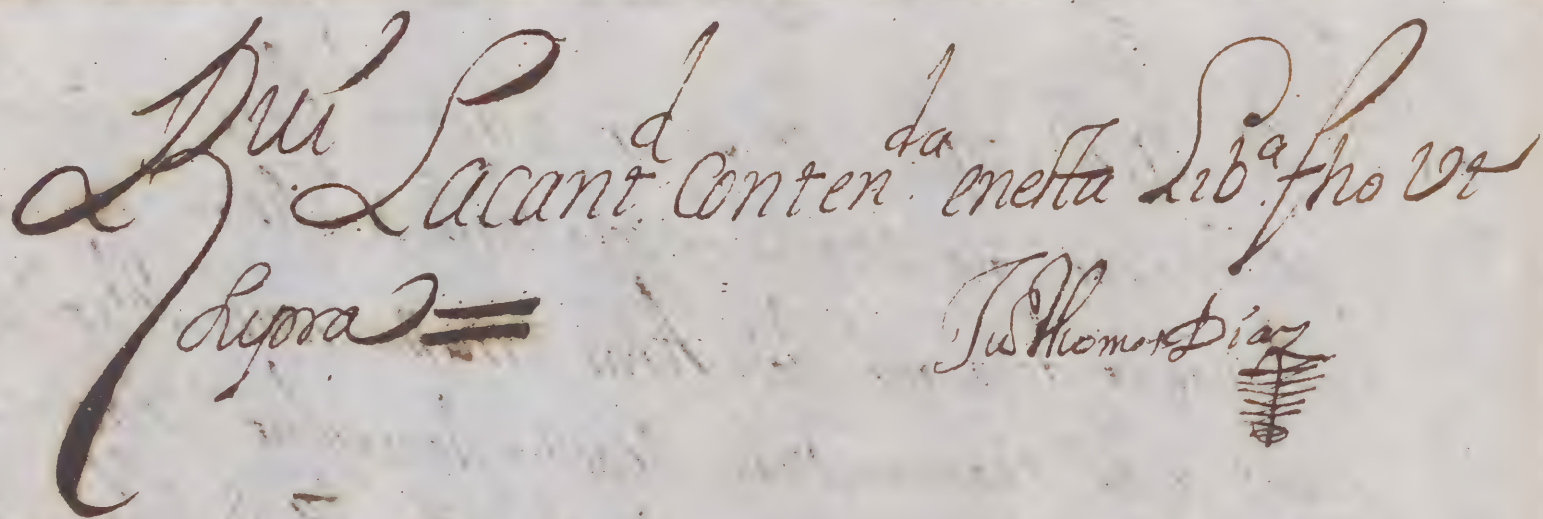 Rvi Lacantd Contenda enesta Liba fho Vt
Supra =
Ju Thomas Diaz